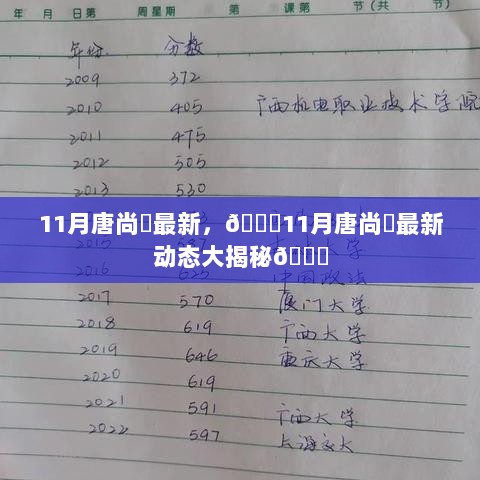 年 月 日 第 周 星期 第 课 第 节(共 节)
年份 分数
2009 372
2010 405 广西机电职业技术学院
2011 475
2012 505
2013 530
11月唐尚�最新，ð���11月唐尚�最新
动态大揭秘ð���
2016 625 中国政法
2017 570 厦门大学
2018 619 广西大学
2019 646 重庆大学
2020 619
2021 591 广西大学
2022 597 上海交大